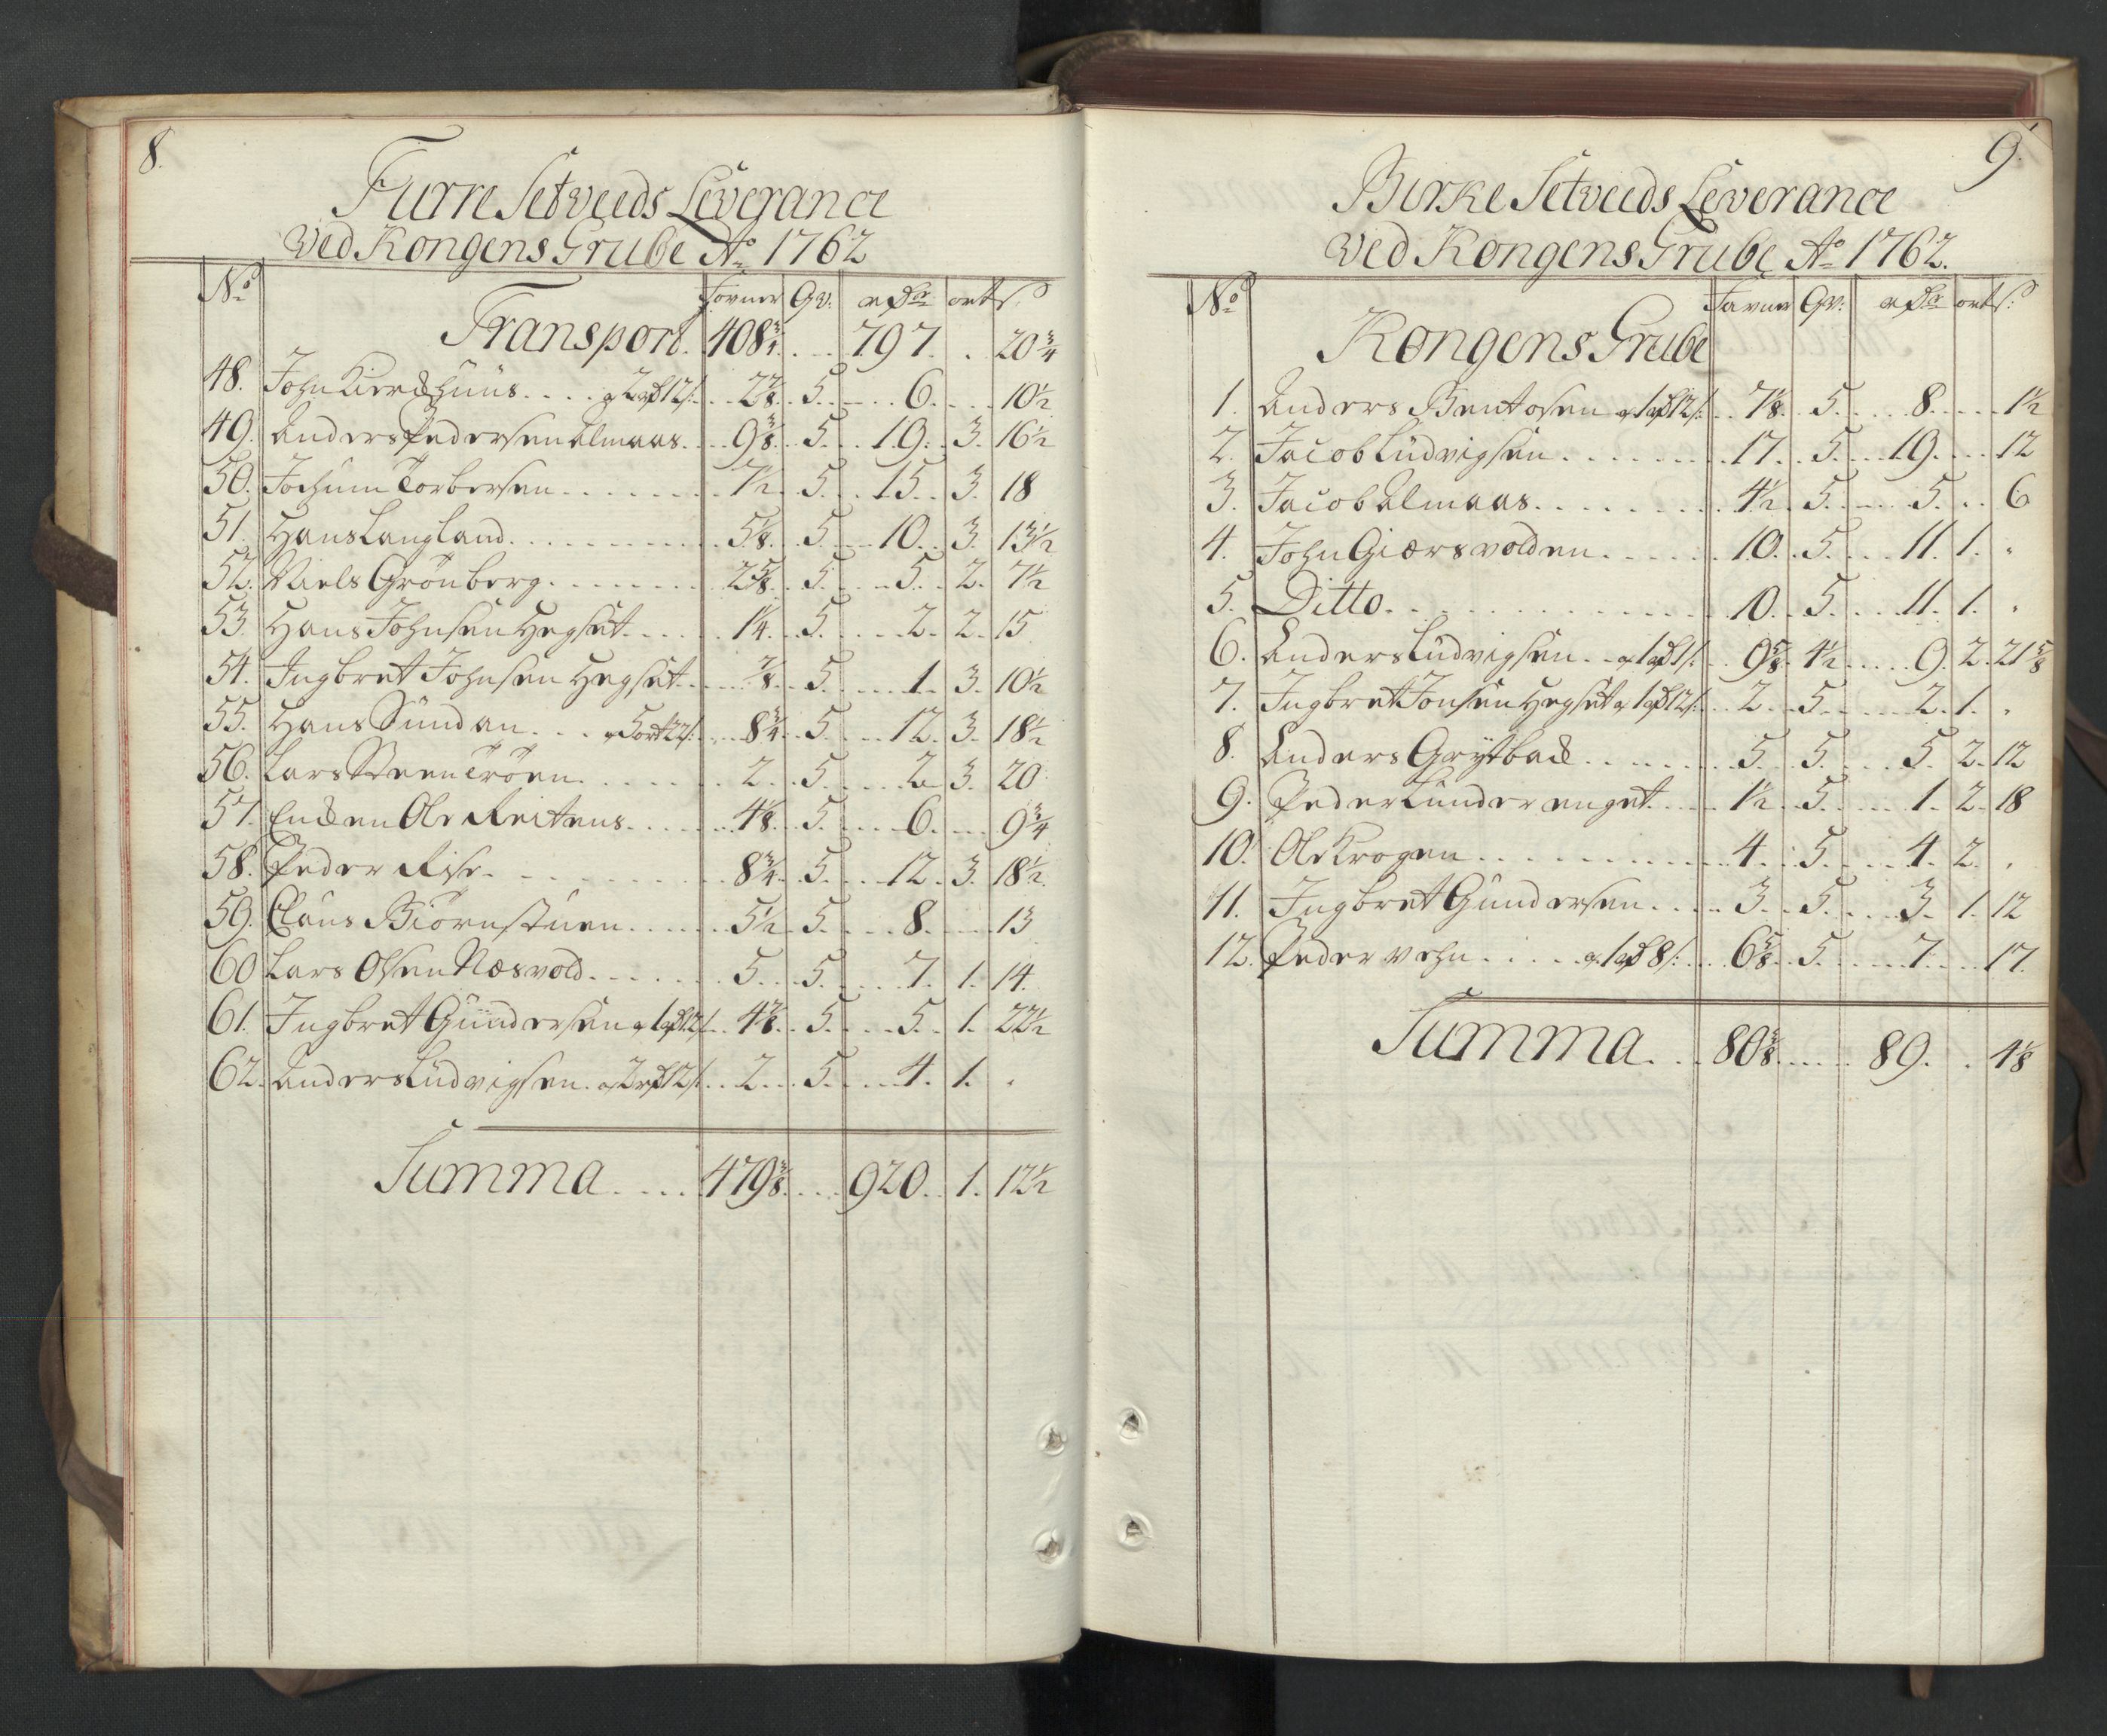 8.
Furre Setveeds Leverance
Ved Kongens Grube Ao 1762
No Favner Qv: rdr ort s.
Transport. 408 3/4 797. 20 3/4
48. John Kierchhuus. a 2 rd 12 s: 2 7/8 5. 6. 10 1/2
49. Anders Pedersen Almaas. 9 3/8 5. 19. 3. 16 1/2
50. Jochum Torbersen 7 1/2 5. 15. 3. 18
51. Hans Langland. 5 1/8 5. 10. 3. 13 1/2
52. Niels Grönberg. 2 5/8 5. 5. 2. 7 1/2
53. Hans Johnsen Hegset. 1 1/4 5. 2. 2. 15
54. Ingbret Johnsen Hegset. 7/8 5. 1. 3. 10 1/2
55. Hans Sundan. a 5 ort 22 s: 8 3/4 5. 12. 3. 18 1/2
56. Lars Steentröen. 2. 5. 2. 3. 20
57. Enken Ole Reitens. 4 1/8 5. 6. 9 3/4
58. Peder Rise. 8 3/4 5. 12. 3. 18 1/2
59. Claus Biörnstuen. 5 1/2 5. 8. 13
60 Lars Olsen Næsvold. 5. 5. 7. 1. 14.
61. Ingbret Gundersen a 1 rd 12 s 4 7/8 5. 5. 1. 22 1/2
62. Anders Ludvigsen. a 2 rd 12 s: 2. 5. 4. 1.
Summa 479 3/8 920. 1. 12 1/2
9.
Birke Setveeds Leverance
Ved Kongens Grube Ao 1762.
No Favner Qv: rdr ort s:
Kongens Grube
1. Anders Bentosen a 1 rd 12 s: 7 1/8 5. 8. 1 1/2
2. Jacob Ludvigsen 17. 5. 19. 12
3. Jacob Almaas. 4 1/2 5. 5. 6
4. John Giersvolden. 10. 5. 11. 1.
5. Ditto. 10. 5. 11. 1.
6. Anders Ludvigsen. a 1 rd 1 s: 9 5/8 4 1/2 9. 2. 21 5/8
7. Ingbret Jonsen Hegset a 1 rd 12 s: 2. 5. 2. 1.
8. Anders Grytbak 5. 5. 5. 2. 12
9. Peder Lunderenget. 1 1/2 5. 1. 2. 18
10. Ole Krogen 4. 5. 4. 2.
11. Ingbret Gundersen. 3. 5. 3. 1. 12
12. Peder Vehn a 1 rd 8 s: 6 5/8 5. 7. 17.
Summa 80 3/8 89. 4 1/8